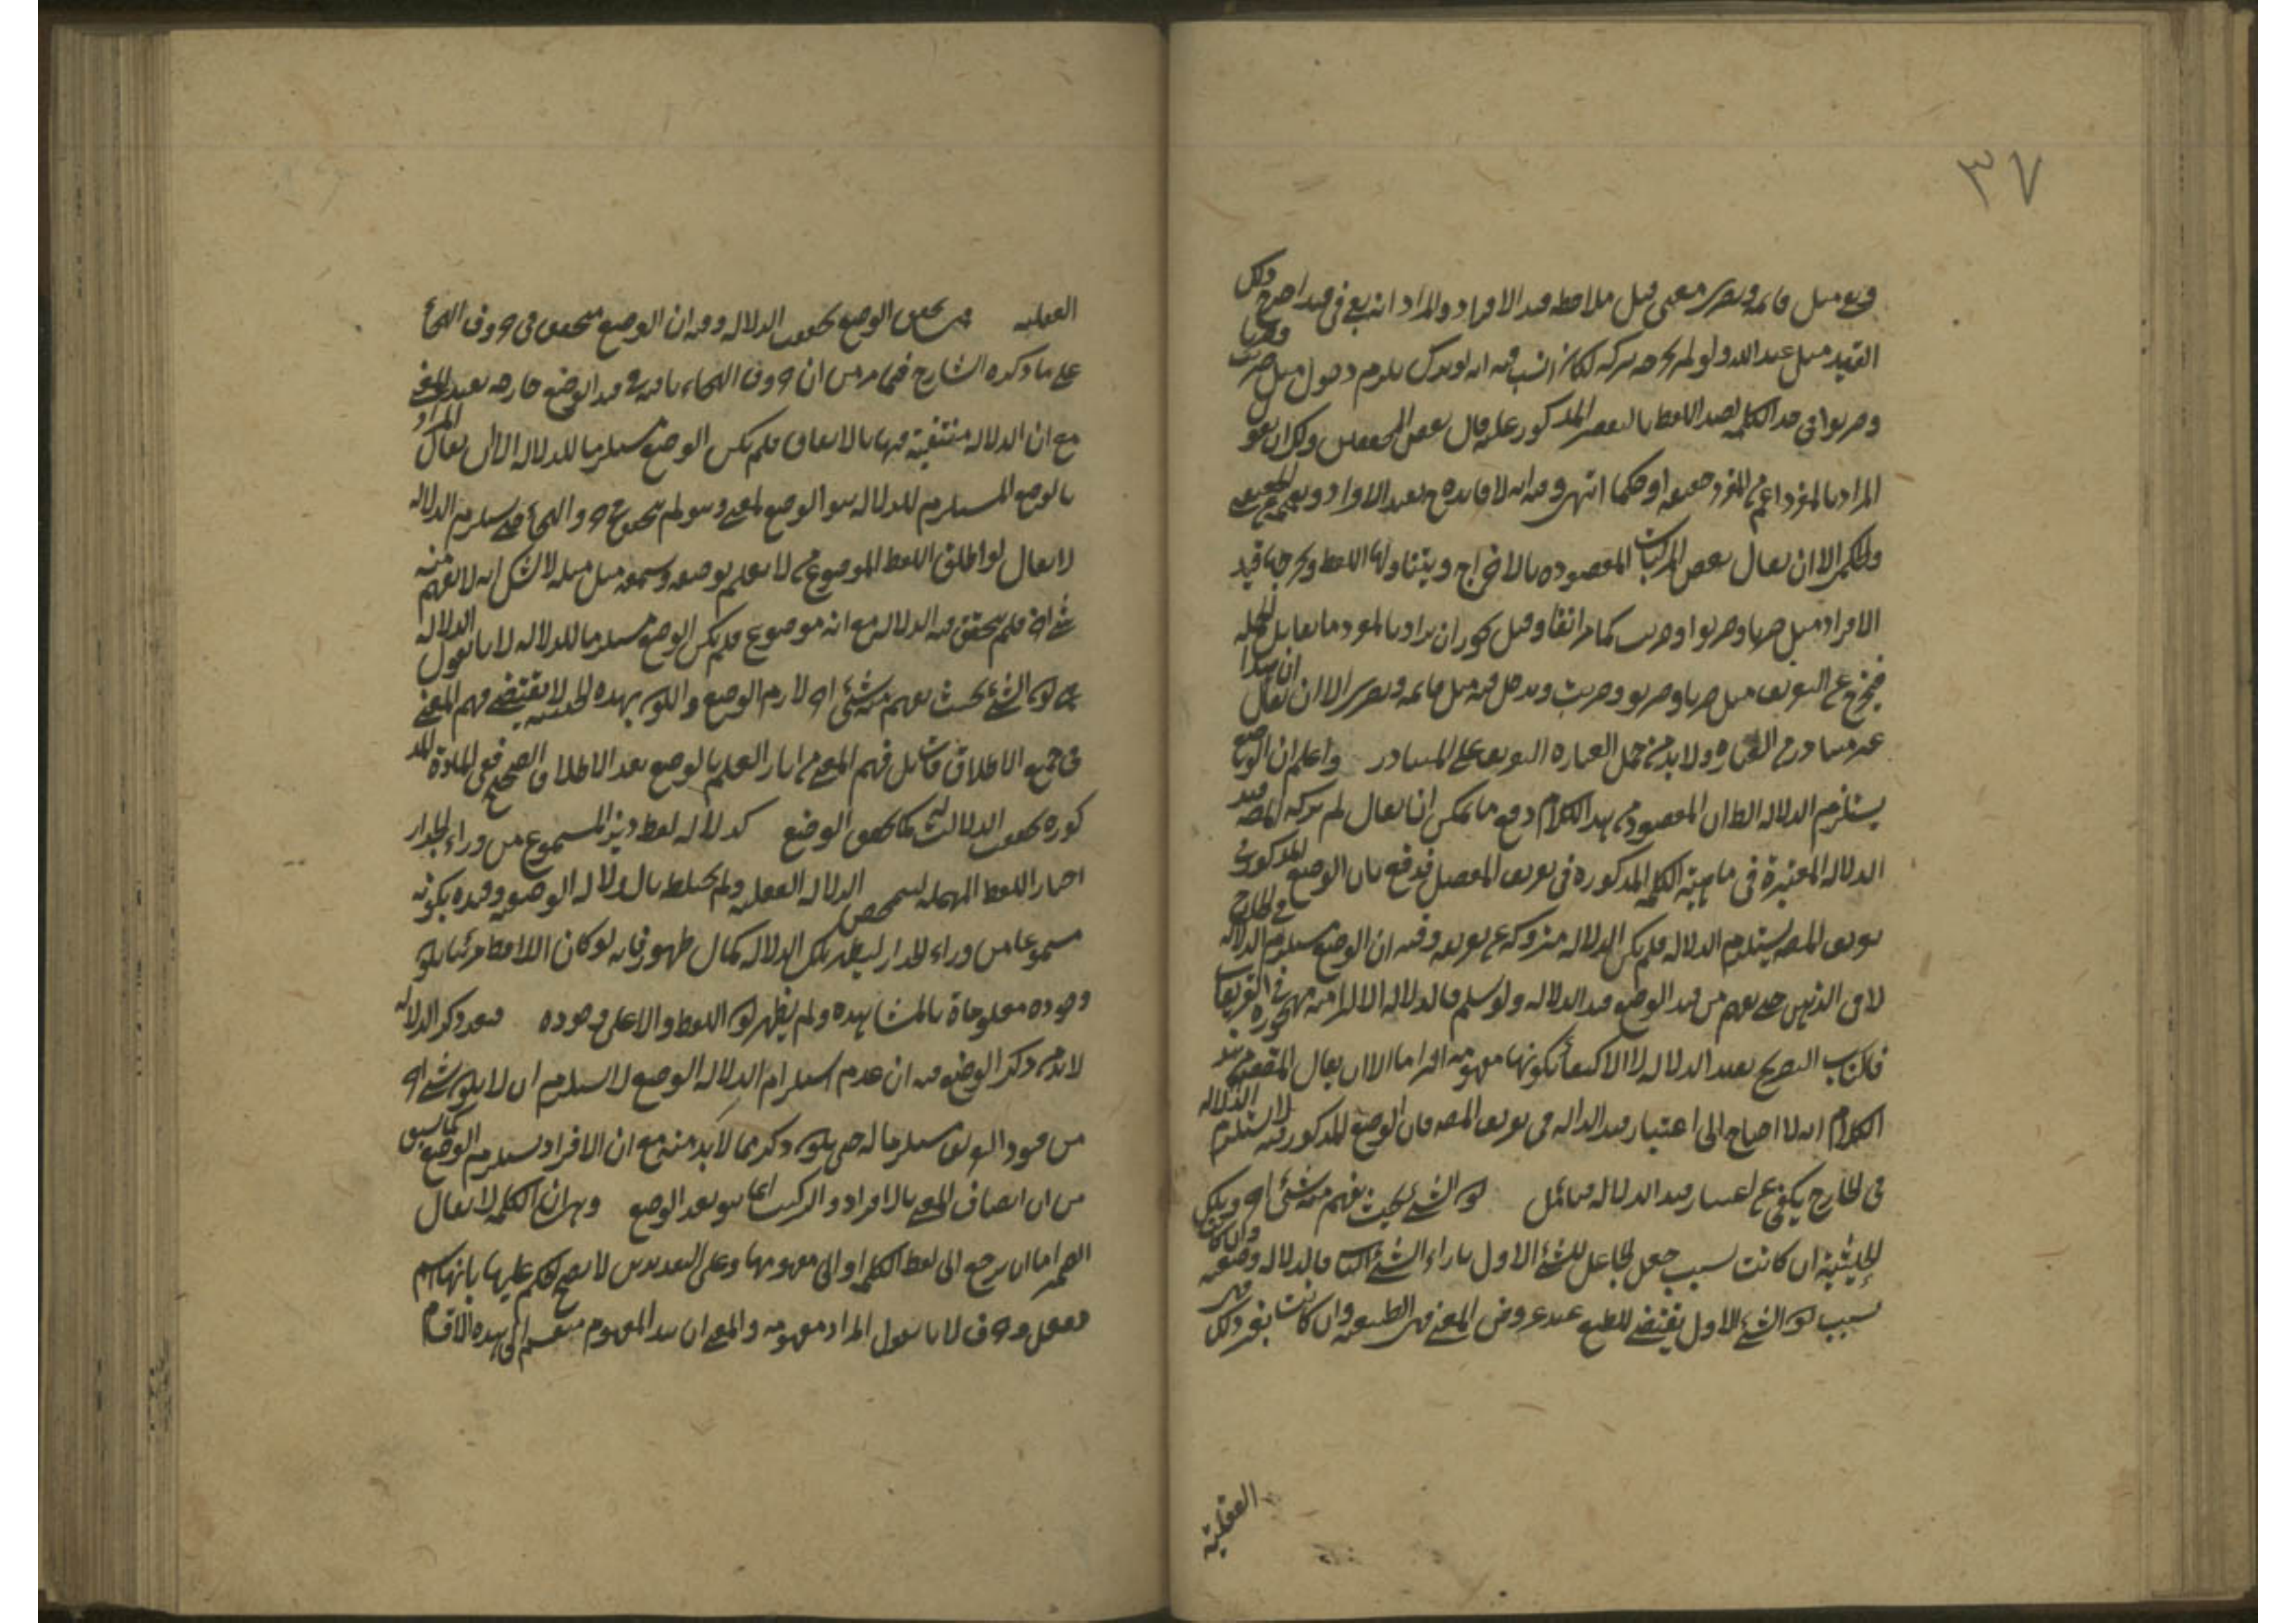 ٣٧
وبقي مثل قائمة وبصري معنى قبل ملاحظة قيد الافراد والمراد انه بقي في قيد اخرج ولكل
القيد مثل عبد الله ولو لم يخرجه بتركه لكان انسب فيه انه لو ترك يلزم دخول مثل ضربت وضربا
وضربوا في حد الكلمة لصد اللفظ بالتفسير المذكور عليه قال بعض المحققين ولك ان تقول
المراد بالمفرد اعم من المفرد حقيقة او حكما انتهى وفيه انه لا فائدة ح بقيد الافراد وبعم الحقيقي
والحكمي الا ان يقال بعض المركبات المقصودة بالاخراج ويتناولها اللفظ ويخرجها قيد
الافراد مثل ضربا وضربوا وضربت كما مر انفا وقيل يجوز ان يراد بالمفرد ما يقابل الجملة
فيخرج عن التعريف مثل ضربا وضربوا وضربت ويدخل فيه مثل قائمة وبصري الا ان يقال ان هذا
غير متبادر من العبارة ولا بد من حمل العبارة التعريف على المتبادر واعلم ان الوضع
يستلزم الدلالة الظ ان المقصود من هذا الكلام دفع ما يمكن ان يقال لم ترك المصه قيد
الدلالة المعتبرة في ماهية الكلمة المذكورة في تعريف المفصل فدفع بان الوضع المذكور في
تعريف المصه يستلزم الدلالة فلم يكن الدلالة متروكة عن تعريفه وفيه ان الوضع يستلزم الدلالة في الخارج
لا في الذهن حتى يفهم من قيد الوضع قيد الدلالة ولو سلم فالدلالة الالتزامية مهجورة في التعريفات
فالمناسب التصريح بقيد الدلالة لا الاكتفاء بكونها مفهومة التزاما الا ان يقال المقصود من هذا
الكلام انه لا احتياج الى اعتبار قيد الدالة في تعريف المصه فان الوضع المذكور فيه لاستلزام الدلالة
في الخارج يكفي عن اعتبار قيد الدلالة فتأمل كون الشئ بحيث يفهم منه شئ اخر وتلك
الحيثية ان كانت بسبب جعل الجاعل للشئ الاول بازاء الشئ الثاني فالدلالة وضعية وان كان
بسبب كون الشئ الاول يقتضي للطبع عند عروض المعنى فهي الطبيعية وان كانت بغير ذلك فهي
العقلية
العقلية فمتى تحقق الوضع تحققت الدلالة وفيه ان الوضع متحقق في حروف الهجاء
على ما ذكره الشارح فيما مر من ان حروف الهجاء باقية في قيد الوضع خارجة بقيد المعنى
مع ان الدلالة منتفية فيها بالاتفاق فلم يكن الوضع مستلزما للدلالة الا ان يقال المراد
بالوضع المستلزم للدلالة هو الوضع لمعنى وهو لم يتحقق في حروف الهجاء حتى يستلزم الدلالة
لا يقال لو اطلق اللفظ الموضوع من لا يعلم بوضعه وسمعه مثل مثله لا شك انه لا يفهم منه
شئ اخر فلم يتحقق فيه الدلالة مع انه موضوع فلم يكن الوضع مستلزما للدلالة لانا نقول الدلالة
هي كون الشئ بحيث يفهم منه شئ اخر لازم الوضع والكون بهذه الحيثية لا يقتضي فهم المعنى
في جميع الاطلاقات بل فهم المعنى من اثار العلم بالوضع بعد الاطلاق الصحيح ففي المادة المذ
كورة تحققت الدلالة كما تحقق الوضع كدلالة لفظ ديز المسموع من وراء الجدار
اختار اللفظ المهملة ليتمحض الدلالة العقلية ولم يختلط بالدلالة الوضعية وقيده بكونه
مسموعا من وراء الجدار ليظهر تلك الدلالة كمال ظهور فانه لو كان اللافظ مرئيا يكون
وجوده معلوما بالمشاهدة ولم يظهر كون اللفظ والا على وجوده فبعد ذكر الدلالة
لا بد من ذكر الوضع فيه ان عدم استلزام الدلالة الوضع لا يستلزم ان لا يكون شئ اخر
من قيود التعريف مستلزما له حتى يكون ذكره مما لا بد منه مع ان الافراد يستلزم الوضع كما سبق
من ان اتصاف المعنى بالافراد والتركيب انما هو بعد الوضع وهي اي الكلمة لا يقال
الضمير اما ان يرجع الى لفظ الكلمة او الى مفهومها وعلى التقديرين لا يصح الحكم عليها بانها اسم
وفعل وحرف لانا نقول المراد مفهومه والمعنى ان هذا المفهوم منقسم الى هذه الاقسام